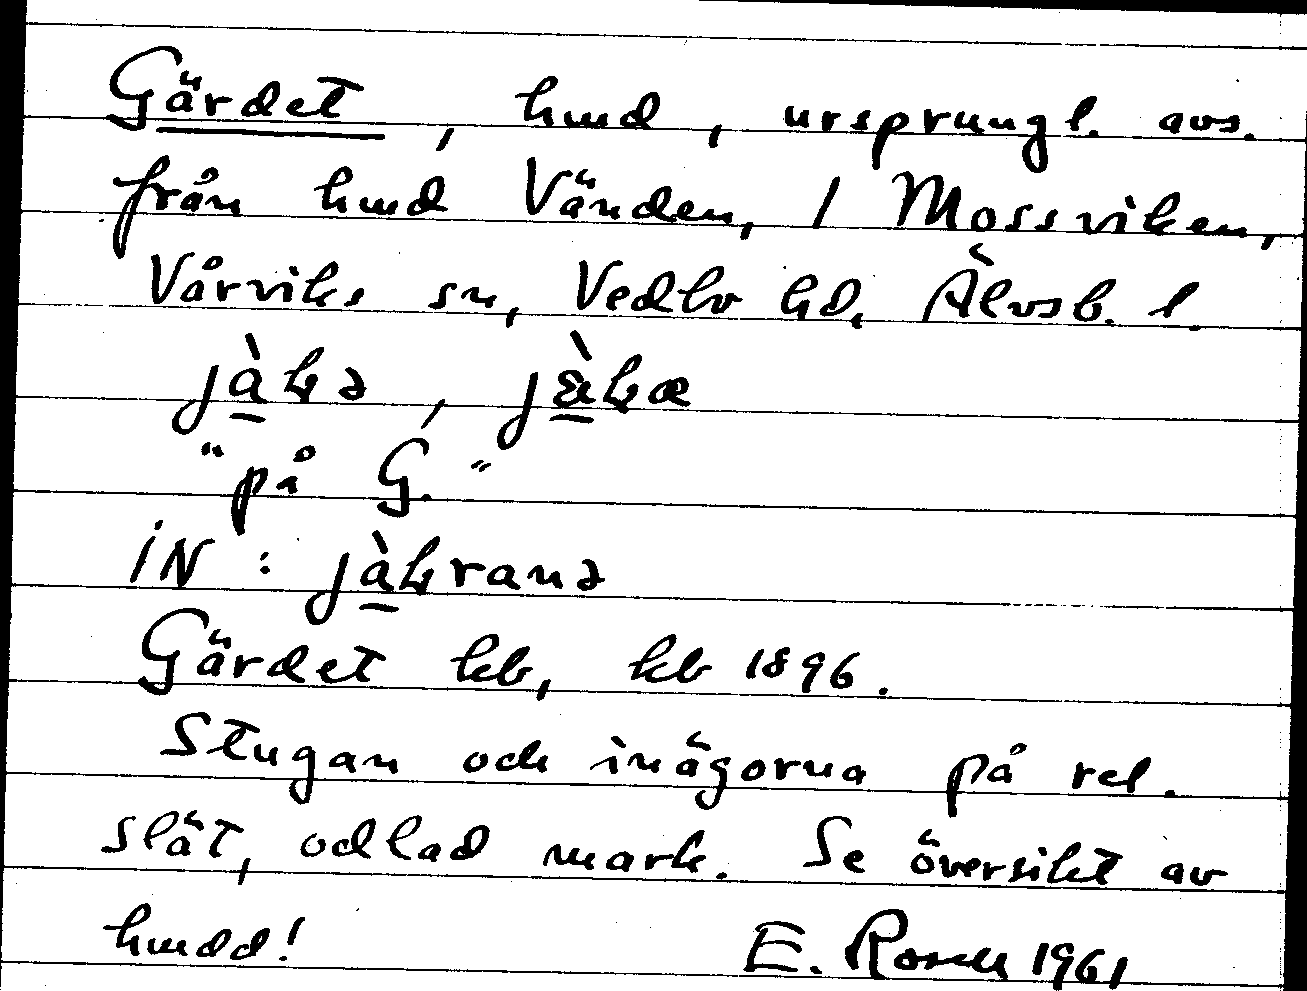 Gärdet, hmd, ursprungl. avs.
från hmd Vänden, 1 Mossviken,
Vårviks sn, Vedbo hd, Älvsb. l.
"på G."
iN:
Gärdet kb, kb 1896.
Stugan och inägorna på rel.
slät, odlad mark. Se översikt av
hmdd! E. Rosell 1961